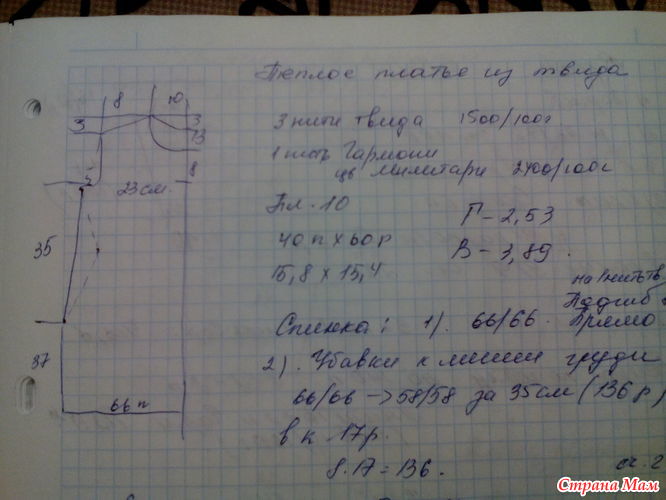 Теплое платье из твида
8 10
3 3
13
3 нити твида 1500/100г
1 нить Гармони
цв Милитари 2400/100г
8
23 см.
Пл. 10
Г - 2,53
40 п х 60 р
В - 3,89.
35
15,8 х 15,4
на 1 нить тв
Подгиб
Спинка: 1). 66/66. Прямо
37
2). Убавки к линии груди
66/66 → 58/58 за 35 см (136 р)
66 п
в к 17 р.
8·17 = 136.
Страна Мам